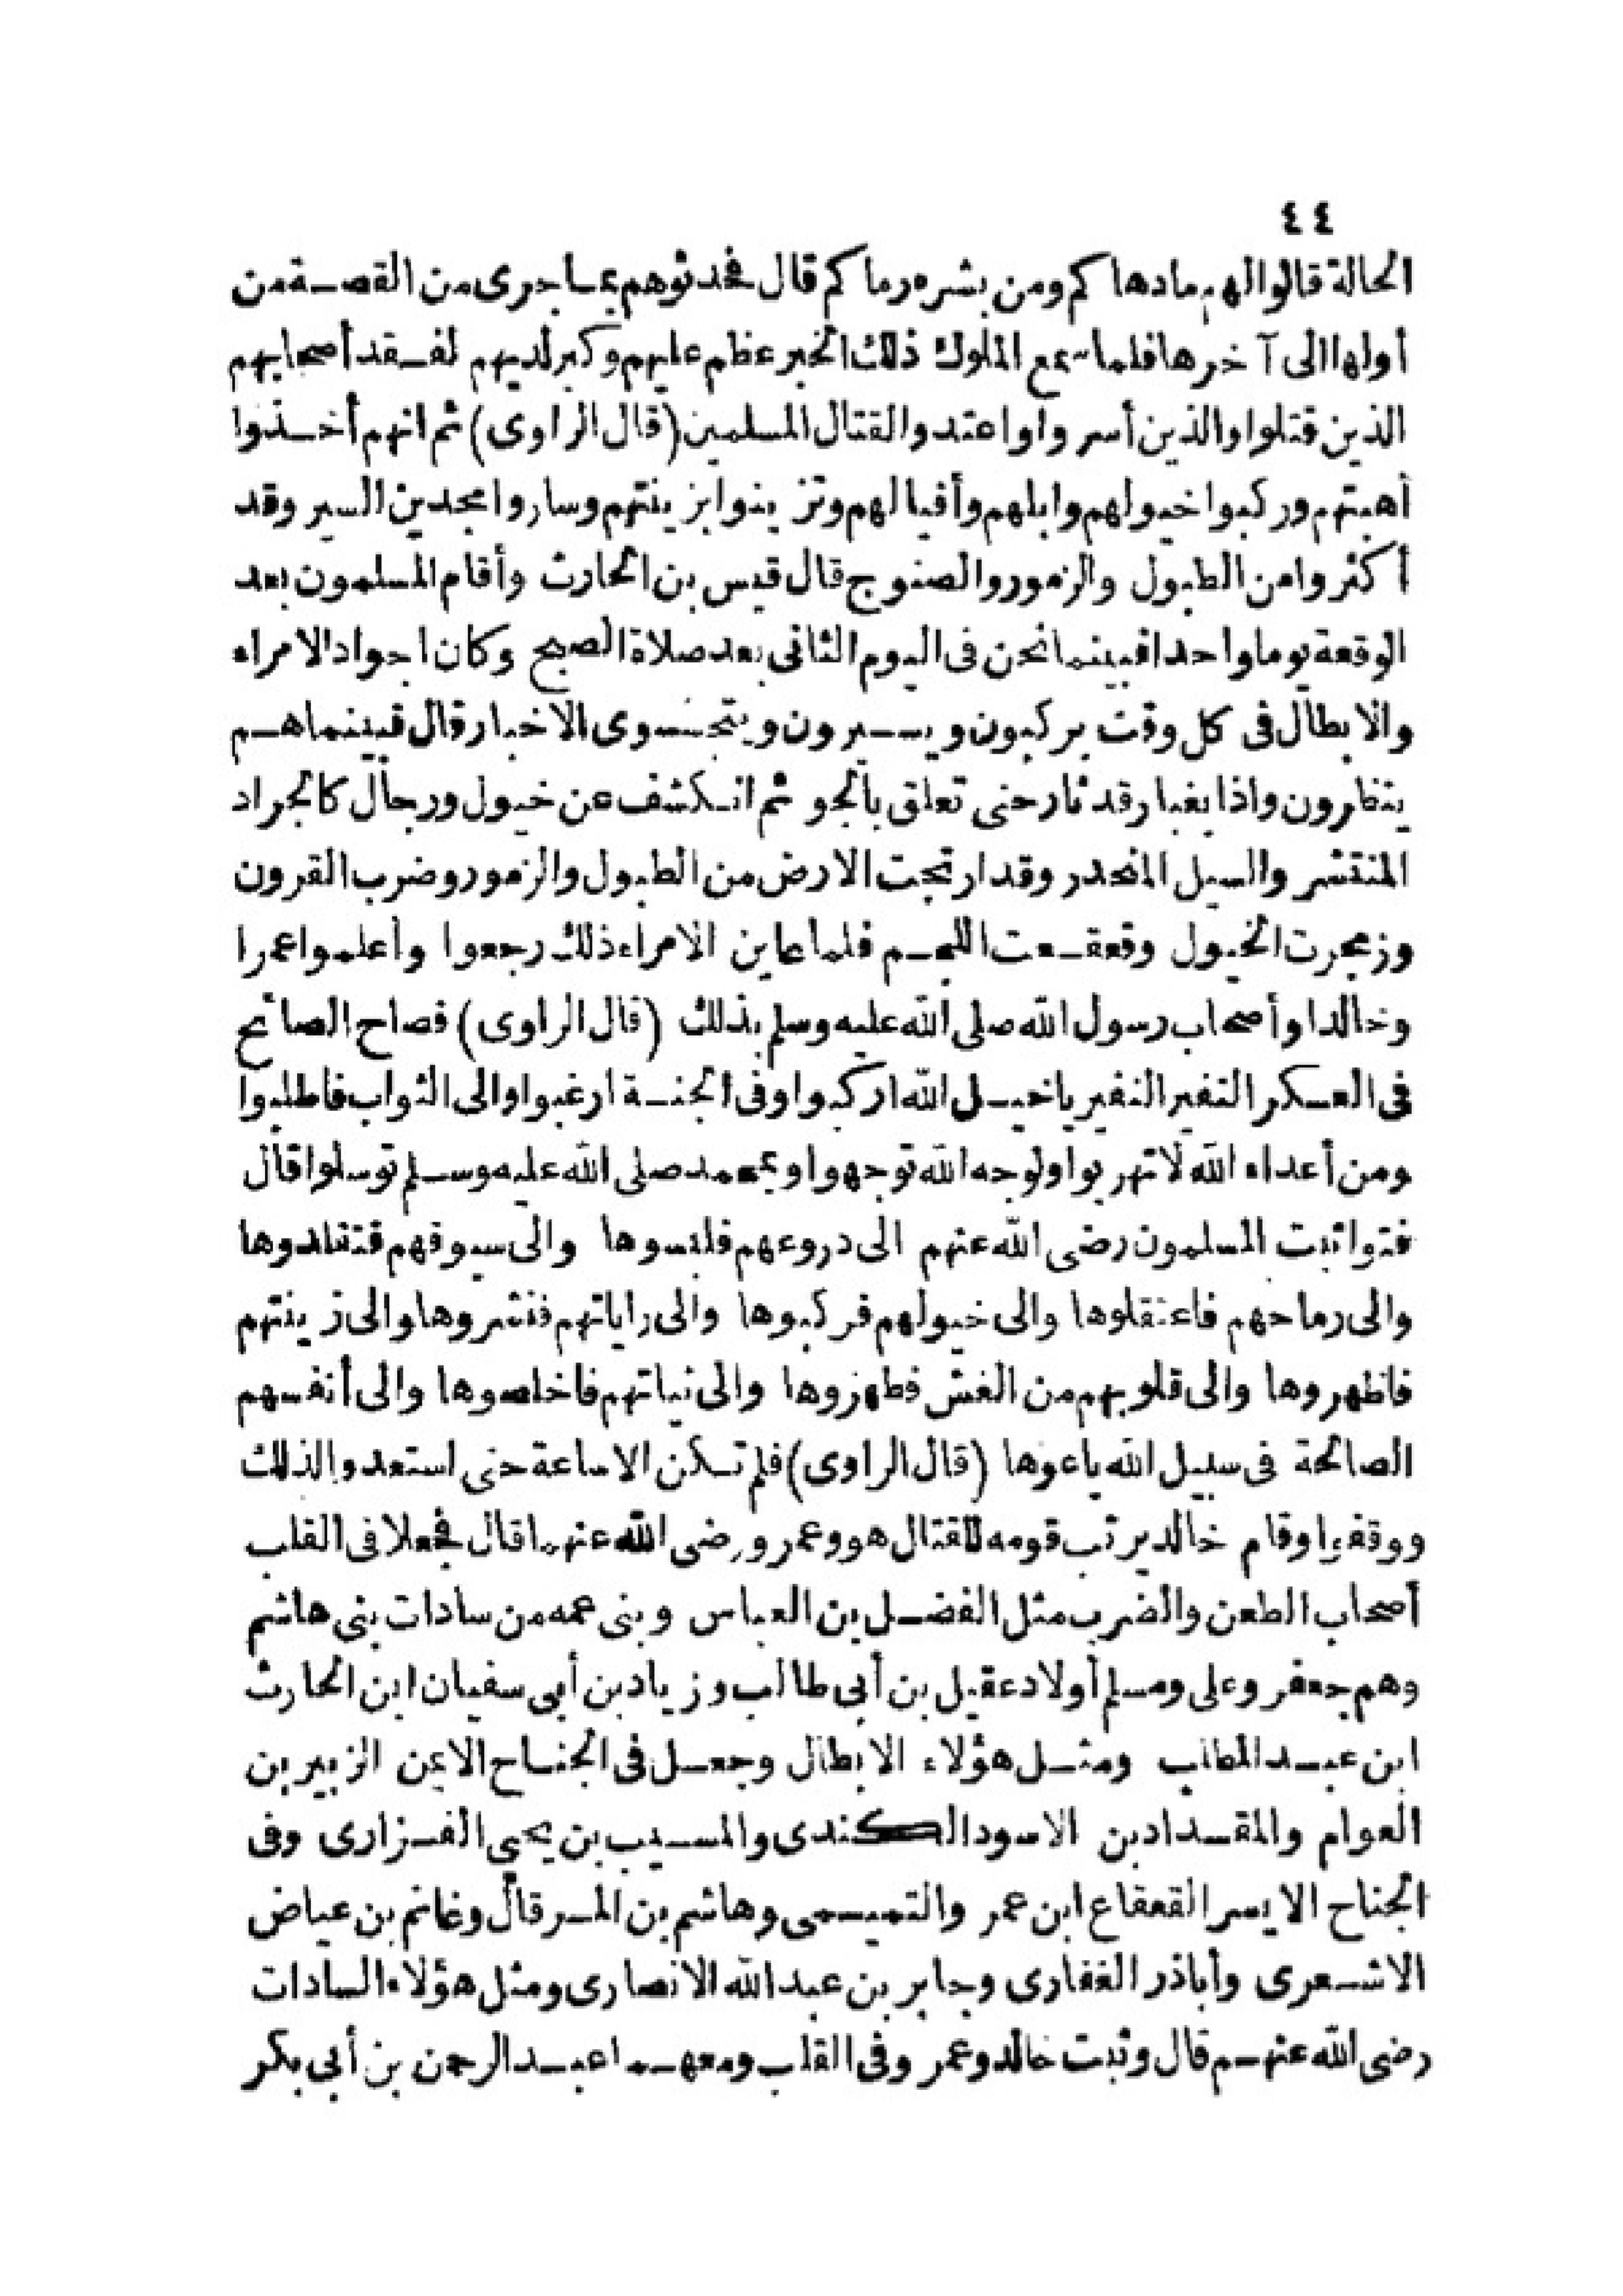 ٤٤
الحالة قالوا لهم مادهاكم ومن بشره رماكم قال فحدثوهم بما جرى من القصة من
أولها الى آخرها فلما سمع الملوك ذلك الخبر عظم عليهم وكبر لديهم لفقد أصحابهم
الذين قتلوا والذين أسروا واعتدوا لقتال المسلمين (قال الراوى) ثم انهم أخذوا
أهبتهم وركبوا خيولهم وابلهم وأفيالهم وتزينوا بزينتهم وساروا مجدين السير وقد
أكثروا من الطبول والزمور والصنوج قال قيس بن الحارث وأقام المسلمون بعد
الوقعة يوما واحدا فبينما نحن فى اليوم الثانى بعد صلاة الصبح وكان اجواد الامراء
والابطال فى كل وقت يركبون ويسيرون ويتجسسوى الاخبار قال فبينما هم
ينظرون واذا بغبار قد ثار حتى تعلق بالجو ثم انكشف عن خيول ورجال كالجراد
المنتشر والسيل المنحدر وقد ارتجت الارض من الطبول والزمور وضرب القرون
وزمجرت الخيول وقعقعت اللجم فلما عاين الامراء ذلك رجعوا وأعلموا عمرا
وخالدا وأصحاب رسول الله صلى الله عليه وسلم بذلك (قال الراوى) فصاح الصائح
فى العسكر النفير النفير ياخيل الله اركبوا وفى الجنة ارغبوا والى الثواب فاطلبوا
ومن أعداء الله لاتهربوا ولوجه الله توجهوا وبمحمد صلى الله عليه وسلم توسلوا قال
فتواثبت المسلمون رضى الله عنهم الى دروعهم فلبسوها والى سيوفهم فتقلدوها
والى رماحهم فاعتقلوها والى خيولهم فركبوها والى راياتهم فنشروها والى زينتهم
فاظهروها والى قلوبهم من الغش فطهروها والى نياتهم فاخلصوها والى أنفسهم
الصالحة فى سبيل الله باعوها (قال الراوى) فلم تكن الاساعة حتى استعدوا لذلك
ووقفوا وقام خالد يرتب قومه للقتال هو وعمرو رضى الله عنهما قال فجعلا فى القلب
أصحاب الطعن والضرب مثل الفضل بن العباس وبنى عمه من سادات بنى هاشم
وهم جعفر وعلى ومسلم أولاد عقيل بن أبى طالب وزياد بن أبى سفيان ابن الحارث
ابن عبد المطلب ومثل هؤلاء الابطال وجعل فى الجناح الايمن الزبير بن
العوام والمقداد بن الاسود الكندى والمسيب بن يحيى الفزارى وفى
الجناح الايسر القعقاع ابن عمر والتميمى وهاشم بن المرقال وغانم بن عياض
الاشعرى وأباذر الغفارى وجابر بن عبد الله الانصارى ومثل هؤلاء السادات
رضى الله عنهم قال وثبت خالد وعمر وفى القلب ومعهما عبد الرحمن بن أبى بكر